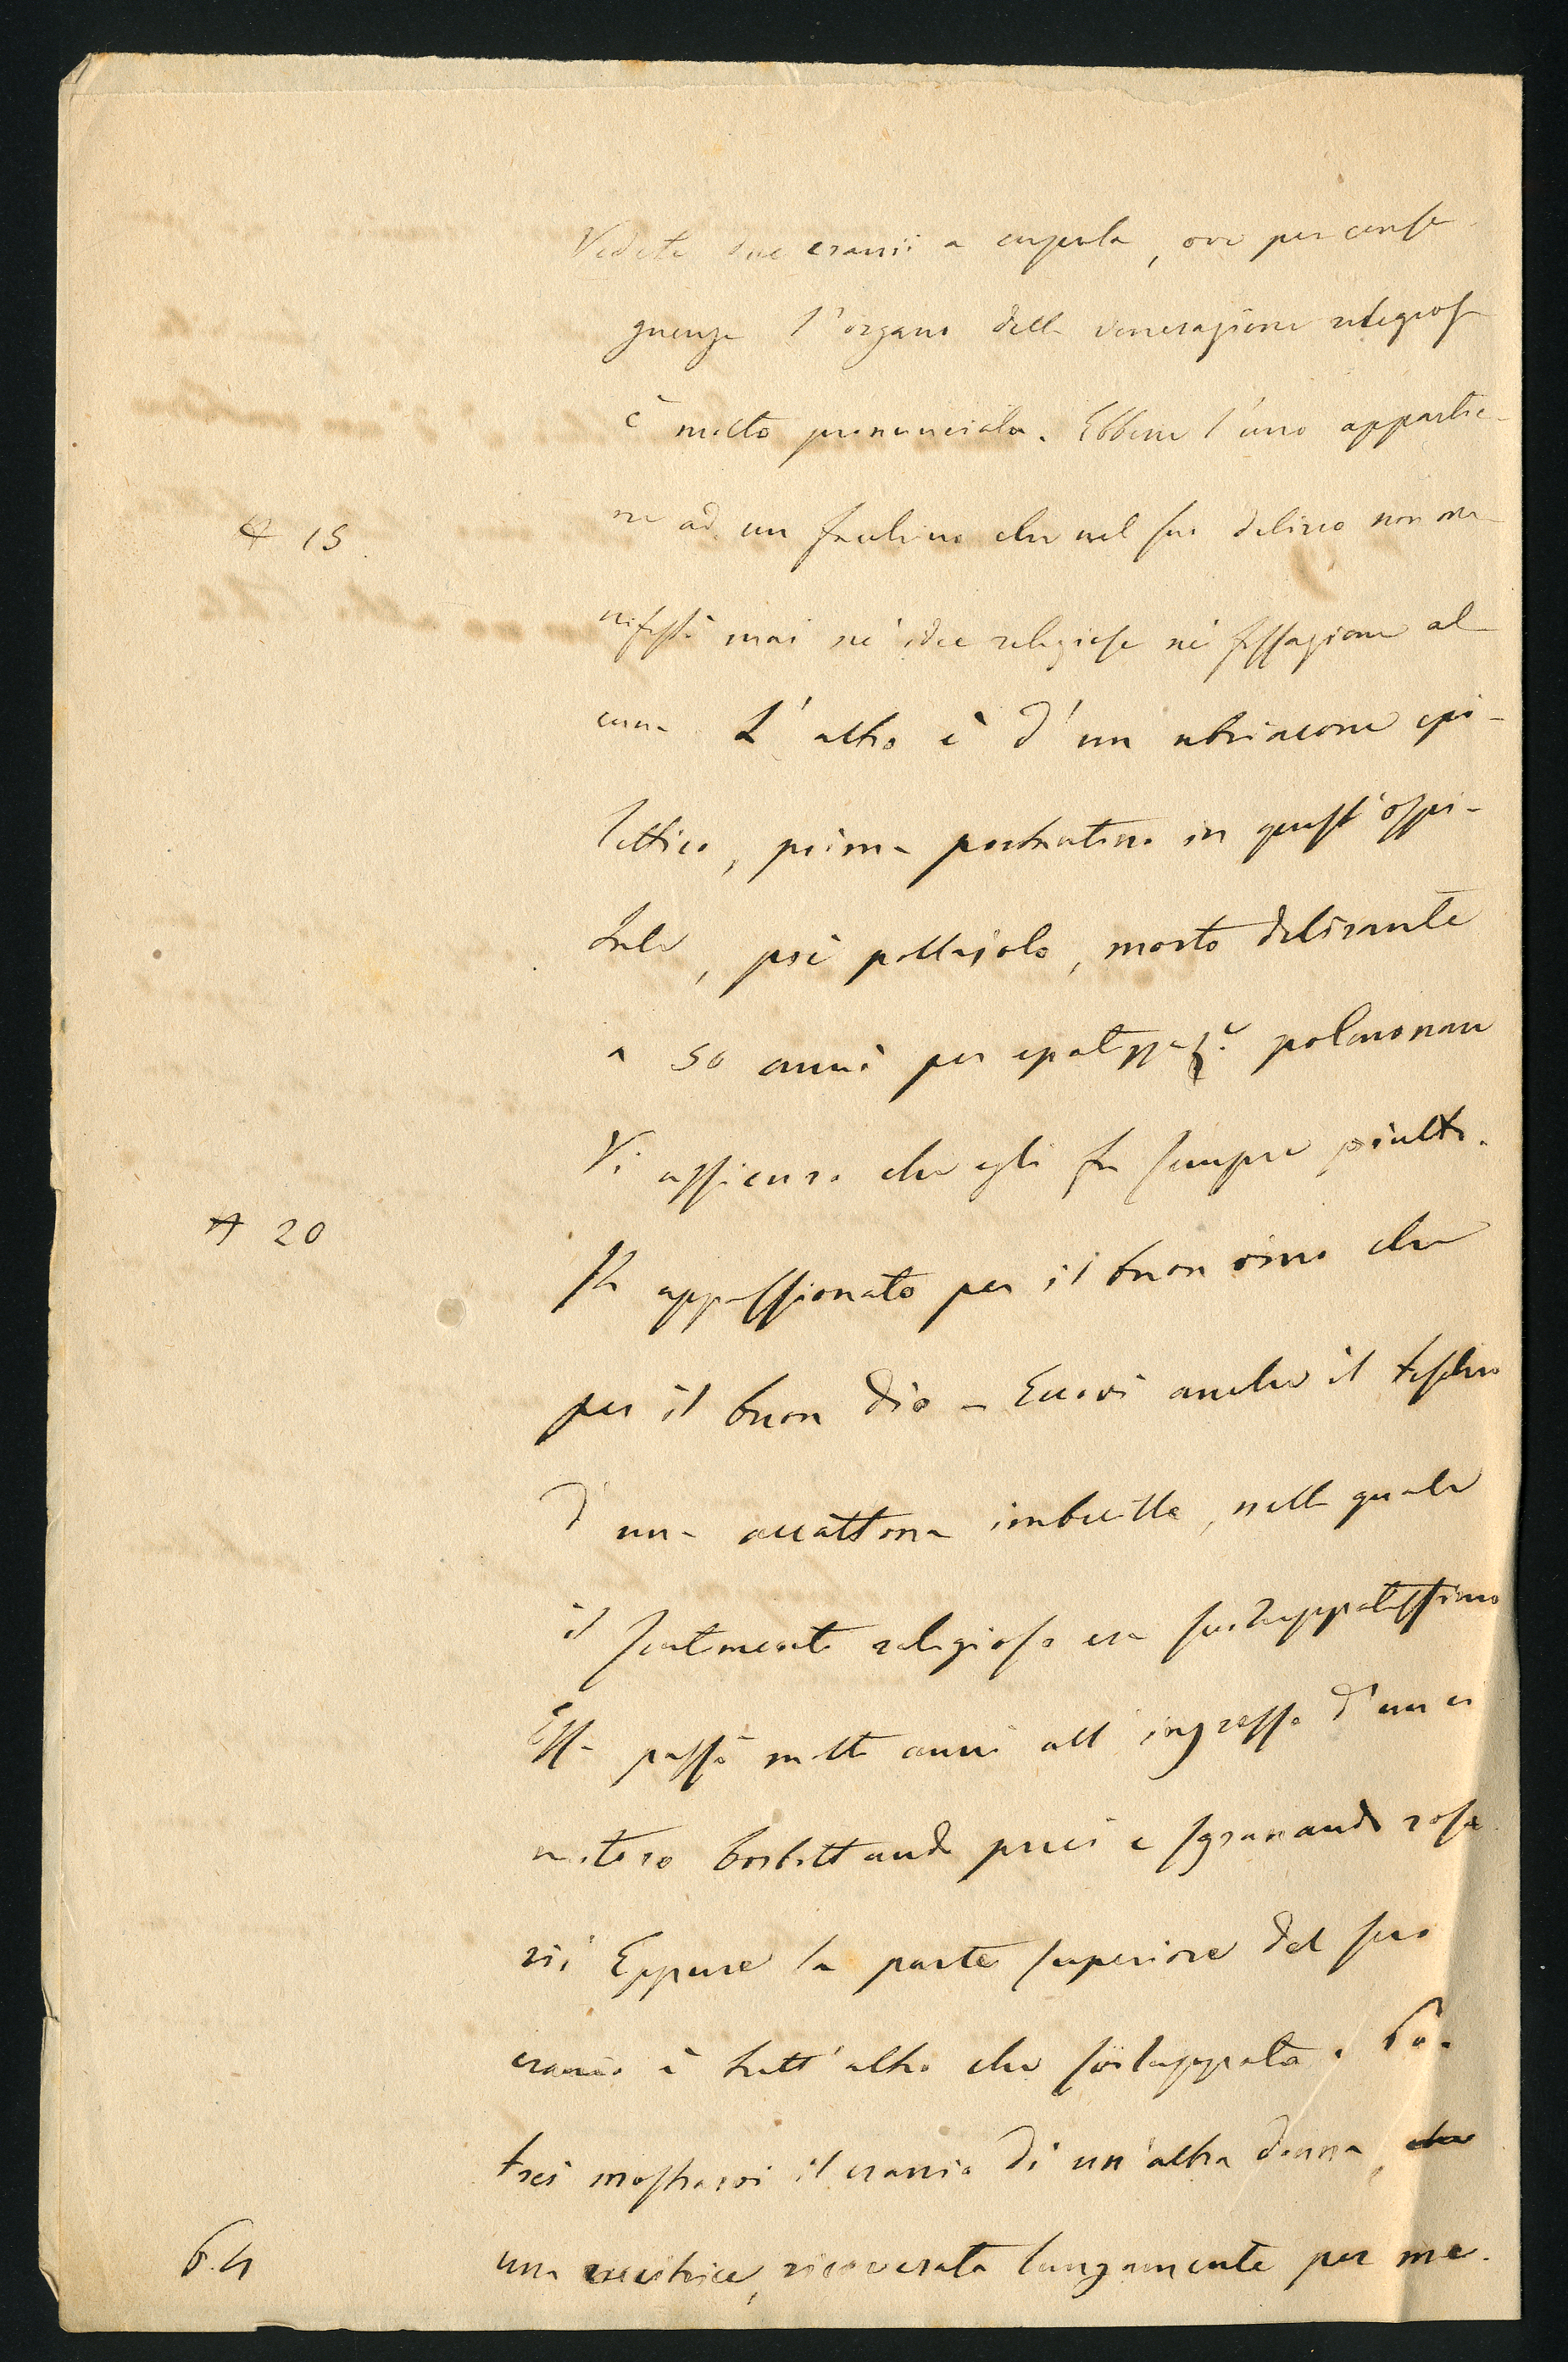 Vedete due cranii a cupola, ove per conse
guenza l'organo della venerazione religiosa
è molto pronunciato. Ebbene l'uno apparte-
ne ad un che nel suo delirio non ma-
A 15.
nifestò mai nè idee religiose nè fissazione al-
cuna L'altro è d'un ubriacone epi-
lettico, prima portantino in quest'ospi-
tale, poi pollajolo, morto delirante
a 50 anni per epatizzaz.e polmonare
Vi assicuro che egli fu sempre piutto.
A 20
sto appassionato per il buon vino che
per il buon Dio - Eccovi anche il teschio
d'una accattona imbecille, nella quale
il sentimento religioso era sviluppatissimo
Essa passò molti anni all'ingresso d'un ci
mitero borbottando preci e sgranando rosa
rii Eppure la parte superiore del suo
cranio è tutt'altro che sviluppata. Po.
trei mostrarvi il cranio di un'altra donna, che
una cucitrice, ricoverata lungamente per ma.
6.4